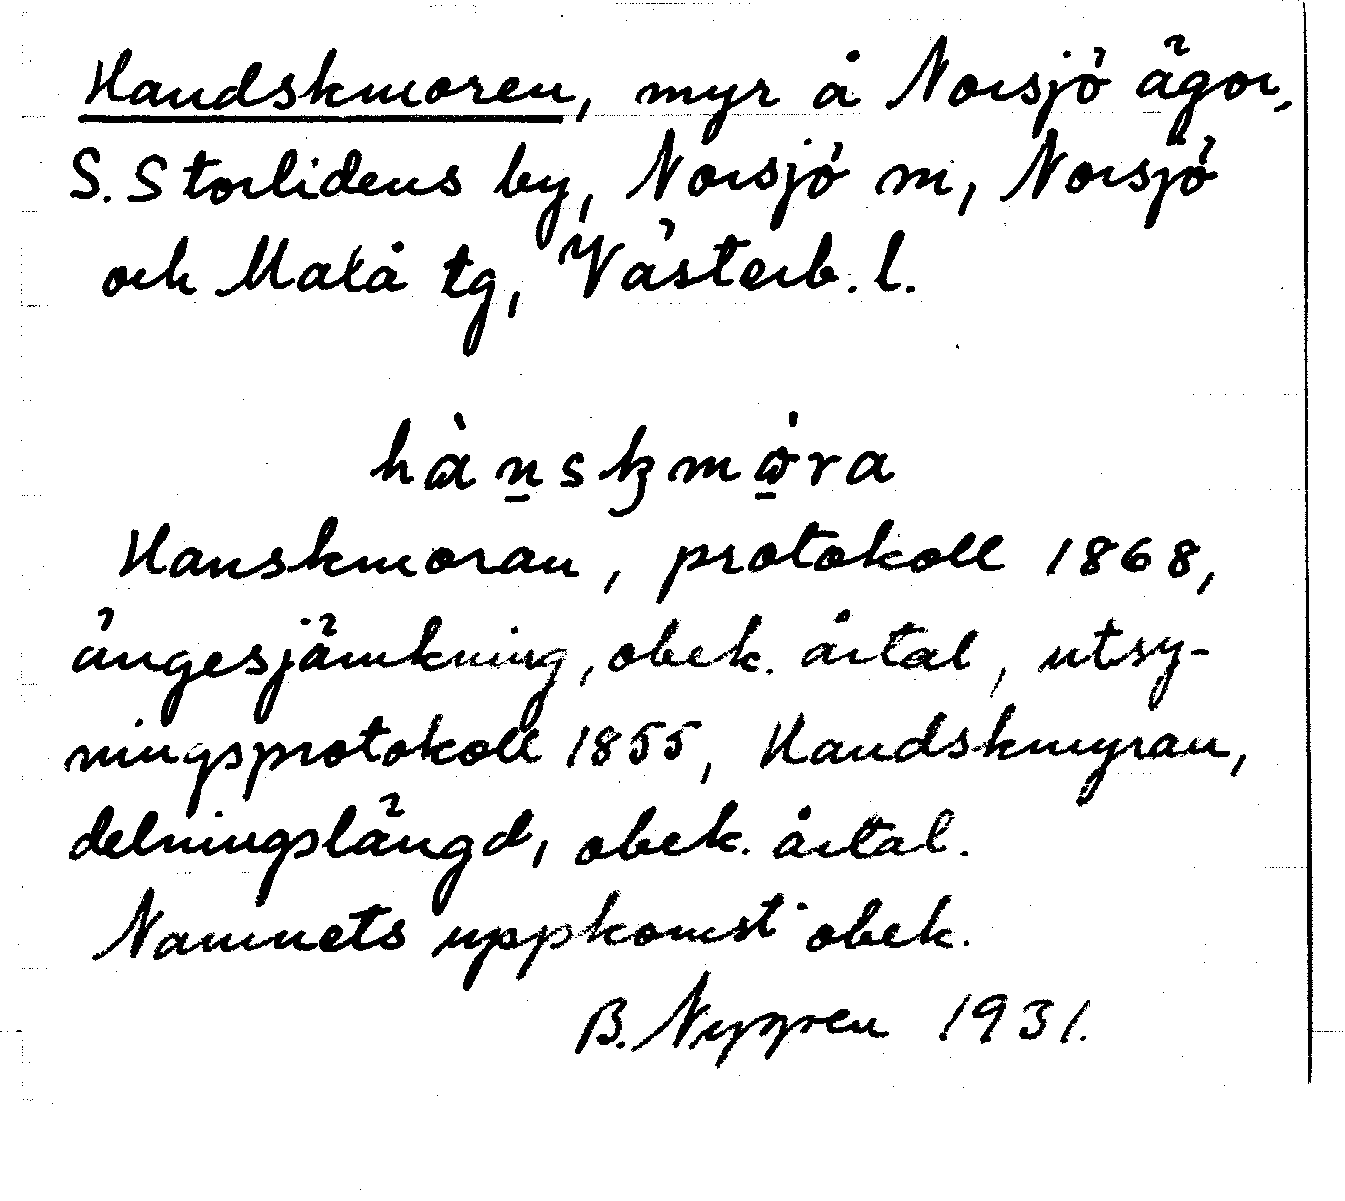 Handskmoren, myr å Norsjö ägor,
S. Storlidens by, Norsjö sn, Norsjö
och Malå tg, Västerb. l.
hànskmòra
Hanskmoran, protokoll 1868,
ängesjämkning, obek. årtal, utsy-
ningsprotokoll 1855, Handskmyran,
delningslängd, obek. årtal.
Namnets uppkomst obek.
B. Nygren 1931.